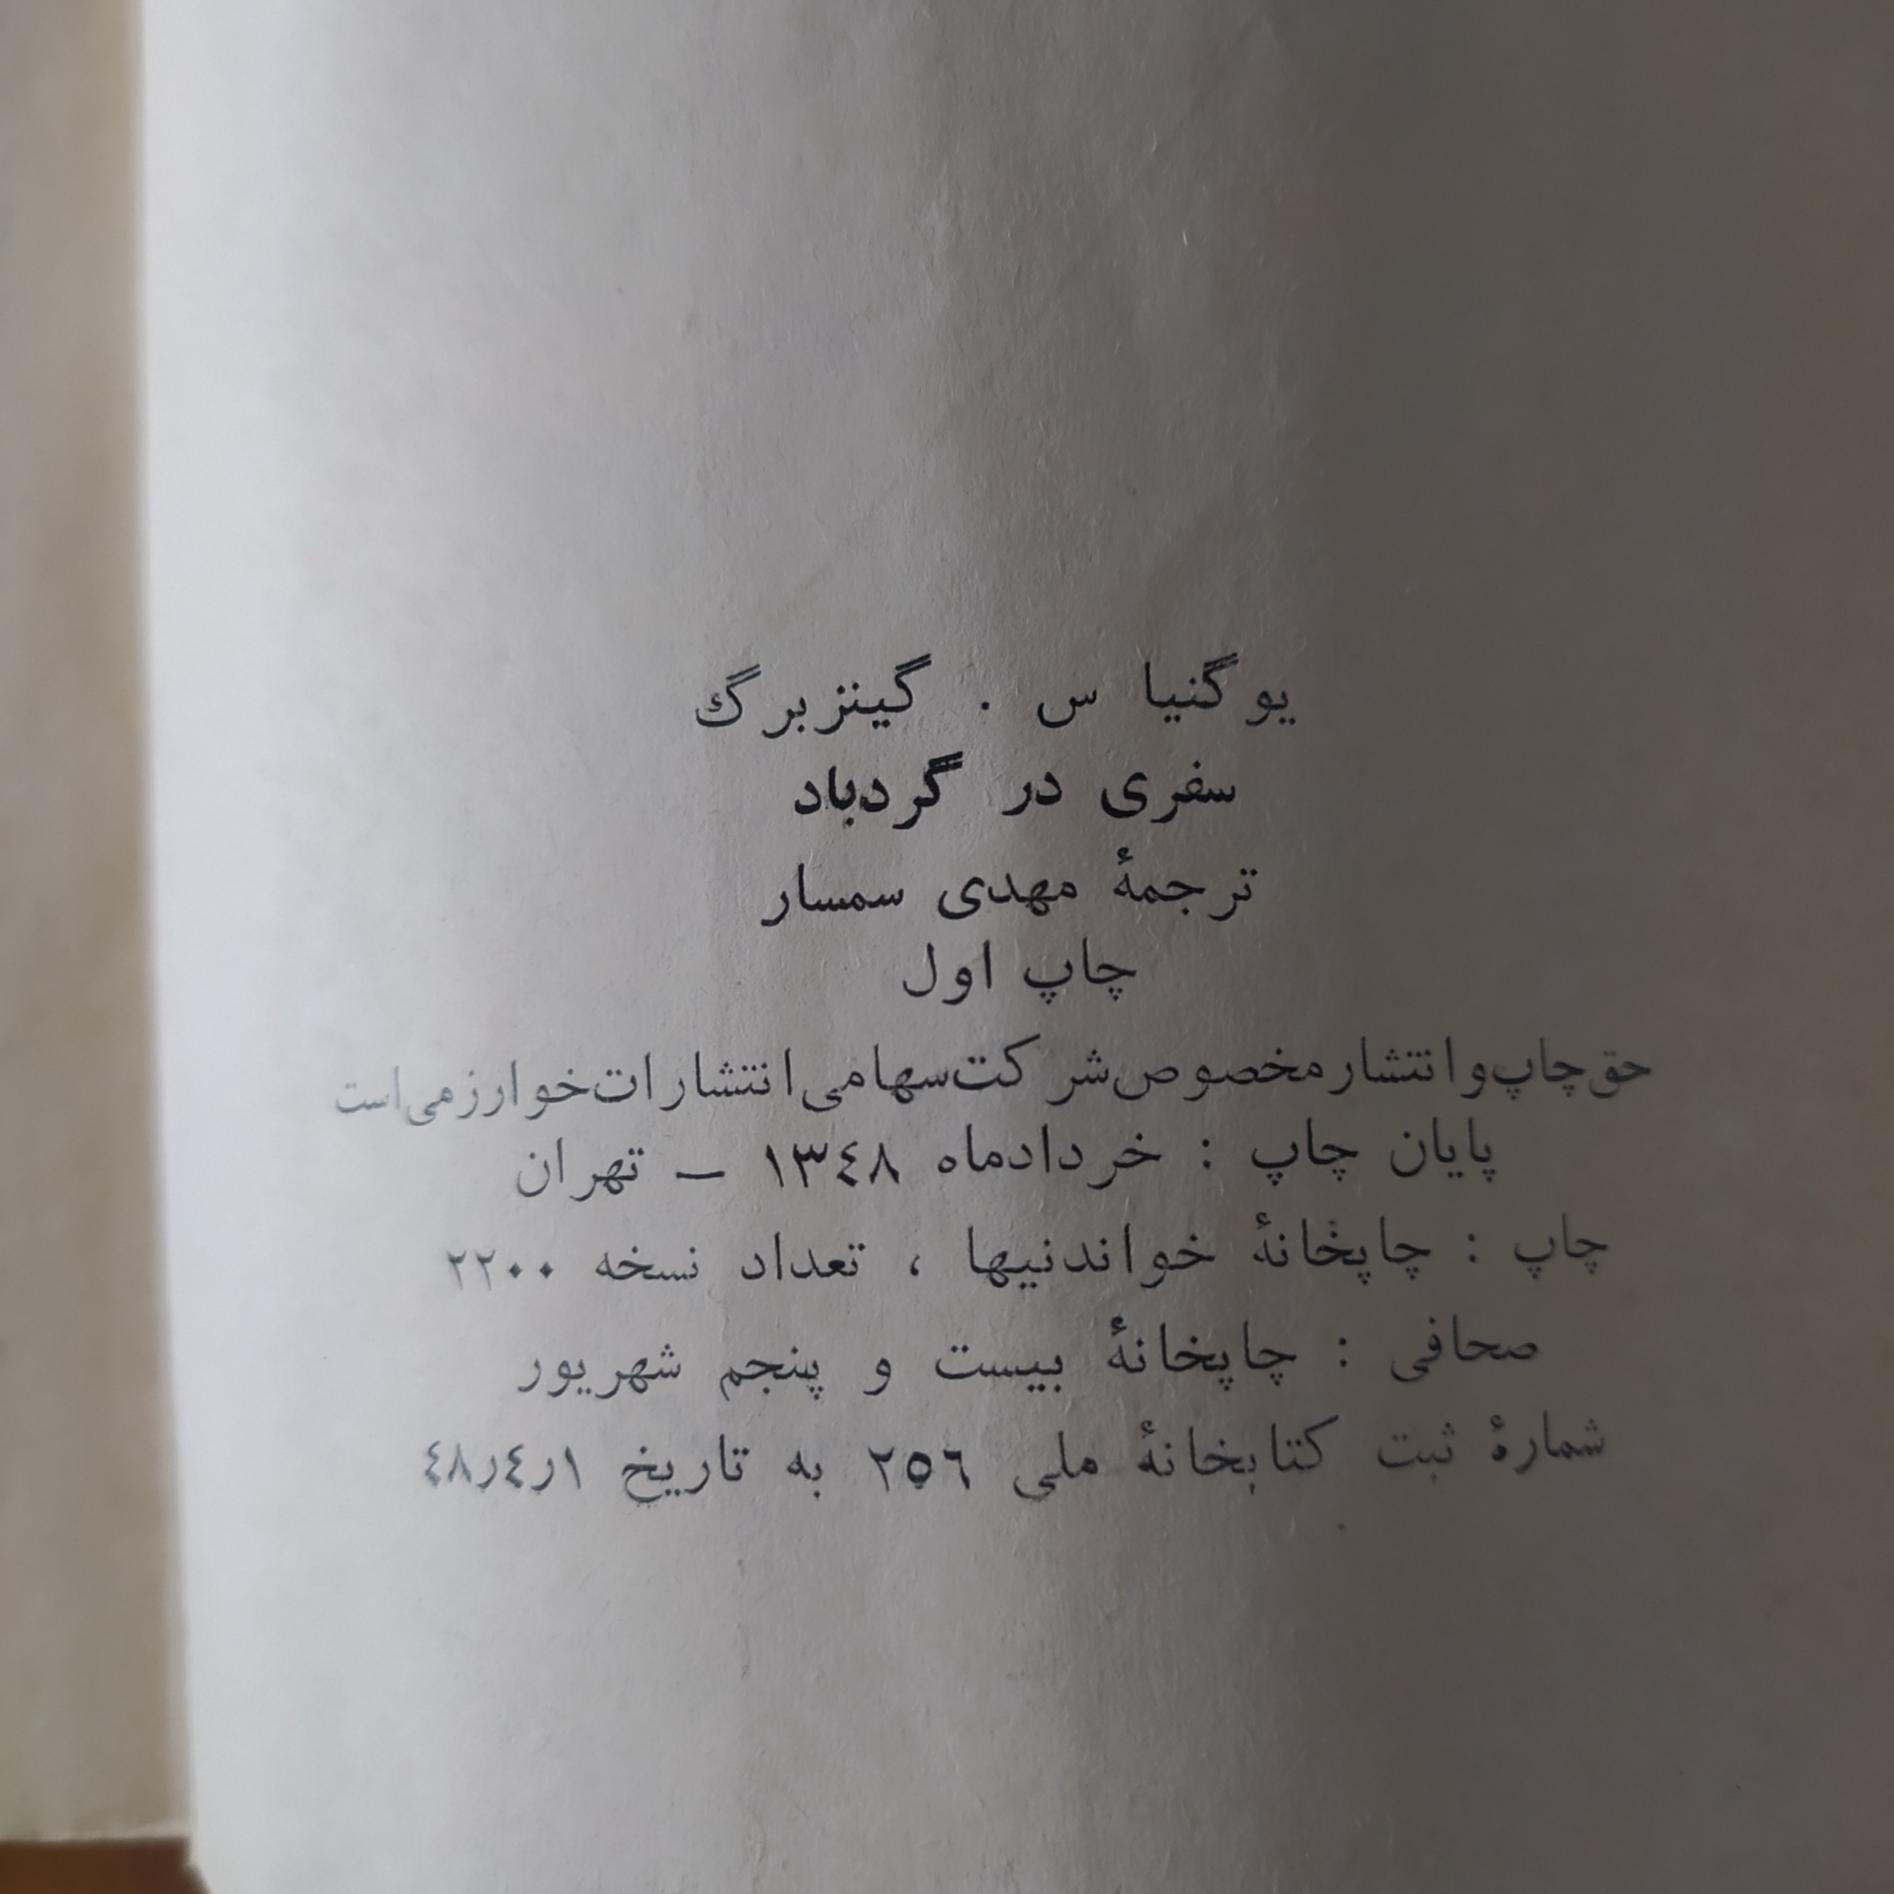 یوگنیا س . گینزبرگ
سفری در گردباد
ترجمهٔ مهدی سمسار
چاپ اول
حق چاپ و انتشار مخصوص شرکت سهامی انتشارات خوارزمی است
پایان چاپ : خردادماه ۱۳٤۸ – تهران
چاپ : چاپخانهٔ خواندنیها ، تعداد نسخه ۲۲۰۰
صحافی : چاپخانهٔ بیست و پنجم شهریور
شمارهٔ ثبت کتابخانهٔ ملی ۲۵٦ به تاریخ ۱ر٤ر٤۸